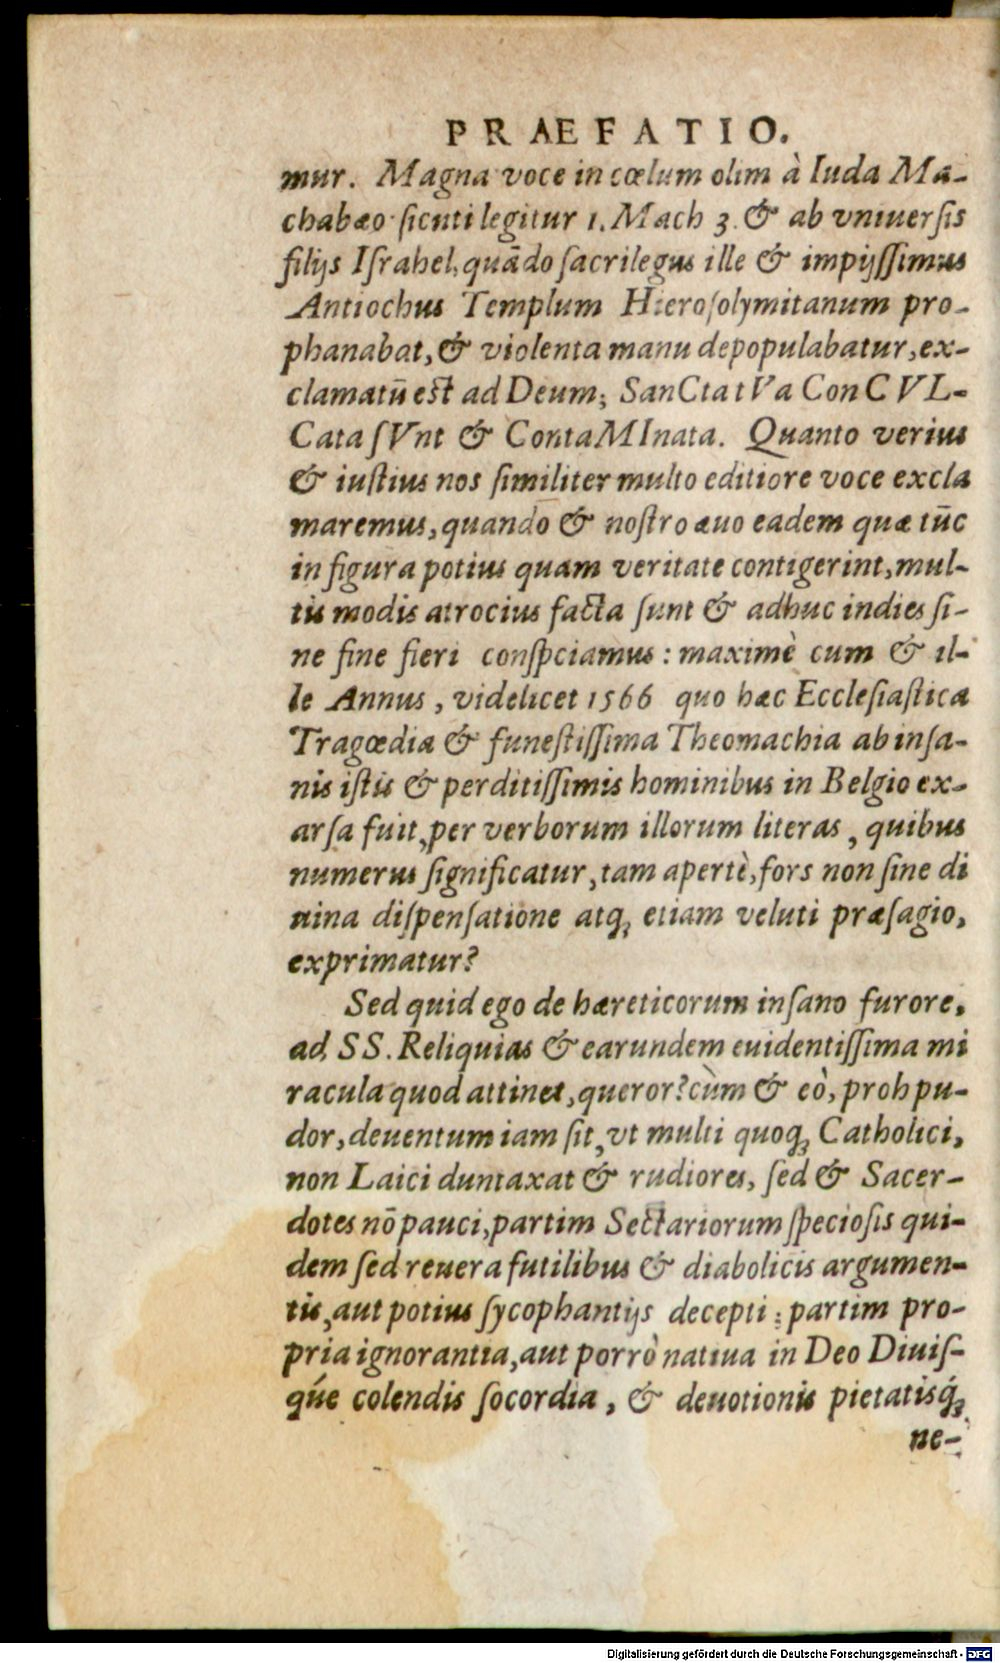 PRAEFATIO.
mur. Magna voce in cœlum olim à Iuda Ma-
chabæo sicuti legitur 1. Mach 3. & ab vniuersis
filijs Israhel, quādo sacrilegus ille & impijssimus
Antiochus Templum Hierosolymitanum pro-
phanabat, & violenta manu depopulabatur, ex-
clamatū est ad Deum; SanCta tVa ConCVL-
Cata sVnt & ContaMInata. Quanto verius
& iustius nos similiter multo editiore voce excla
maremus, quando & nostro æuo eadem quæ tūc
in figura potius quam veritate contigerint, mul-
tis modis atrocius facta sunt & adhuc indies si-
ne fine fieri conspciamus: maximè cum & il-
le Annus, videlicet 1566 quo hæc Ecclesiastica
Tragœdia & funestissima Theomachia ab insa-
nis istis & perditissimis hominibus in Belgio ex-
arsa fuit, per verborum illorum literas, quibus
numerus significatur, tam apertè, fors non sine di
uina dispensatione atq; etiam veluti præsagio,
exprimatur?
Sed quid ego de hæreticorum insano furore,
ad SS. Reliquias & earundem euidentissima mi
racula quod attinet, queror? cùm & eò, proh pu-
dor, deuentum iam sit, vt multi quoq; Catholici,
non Laici duntaxat & rudiores, sed & Sacer-
dotes nō pauci, partim Sectariorum speciosis qui-
dem sed reuera futilibus & diabolicis argumen-
tis, aut potius sycophantijs decepti: partim pro-
pria ignorantia, aut porrò natiua in Deo Diuis-
qúe colendis socordia, & deuotionis pietatisq́;
ne-
Digitalisierung gefördert durch die Deutsche Forschungsgemeinschaft - DFG